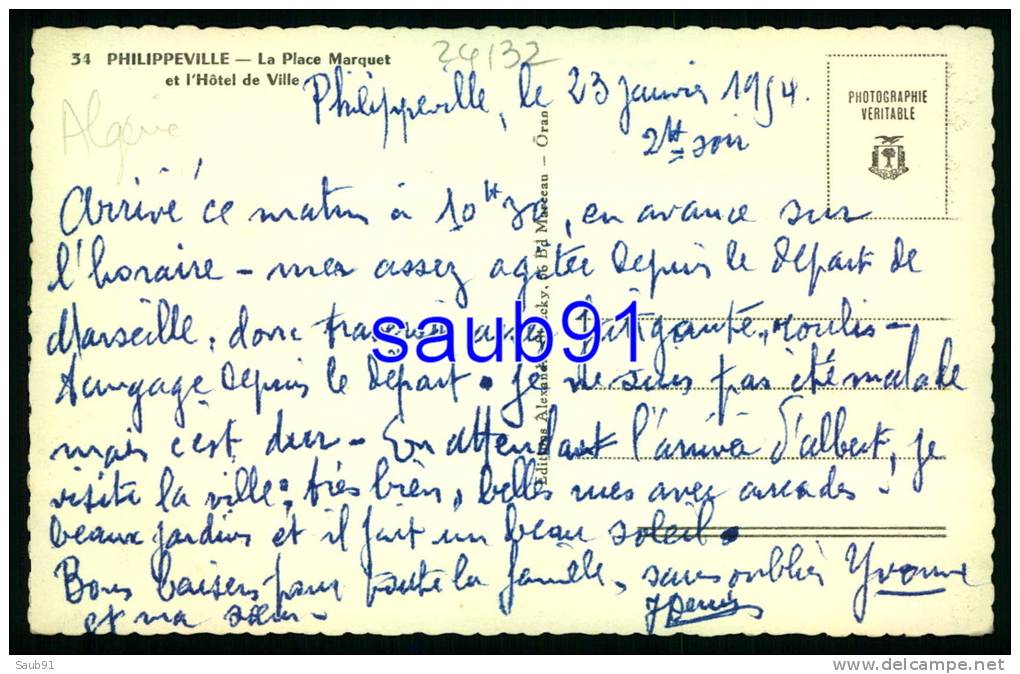 34 PHILIPPEVILLE — La Place Marquet
et l'Hôtel de Ville
24132
Algérie
PHOTOGRAPHIE
VERITABLE
Philippeville, le 23 janvier 1954.
2H soir
Arrivé ce matin à 10H30, en avance sur
l'horaire - mer assez agitée depuis le départ de
Marseille, donc fatigante, roulis -
tangage depuis le départ. je ne suis pas été malade
mais c'est dur - En attendant l'arrivée d'albert, je
visite la ville, très bien, belles rues avec arcades -
beaux jardins et il fait un beau soleil.
Bons baisers pour toute la famille, sans oublier Yvonne
et ma sœur -
Editions Bd Marceau - Oran
saub91
Saub91
http://www.delcampe.net